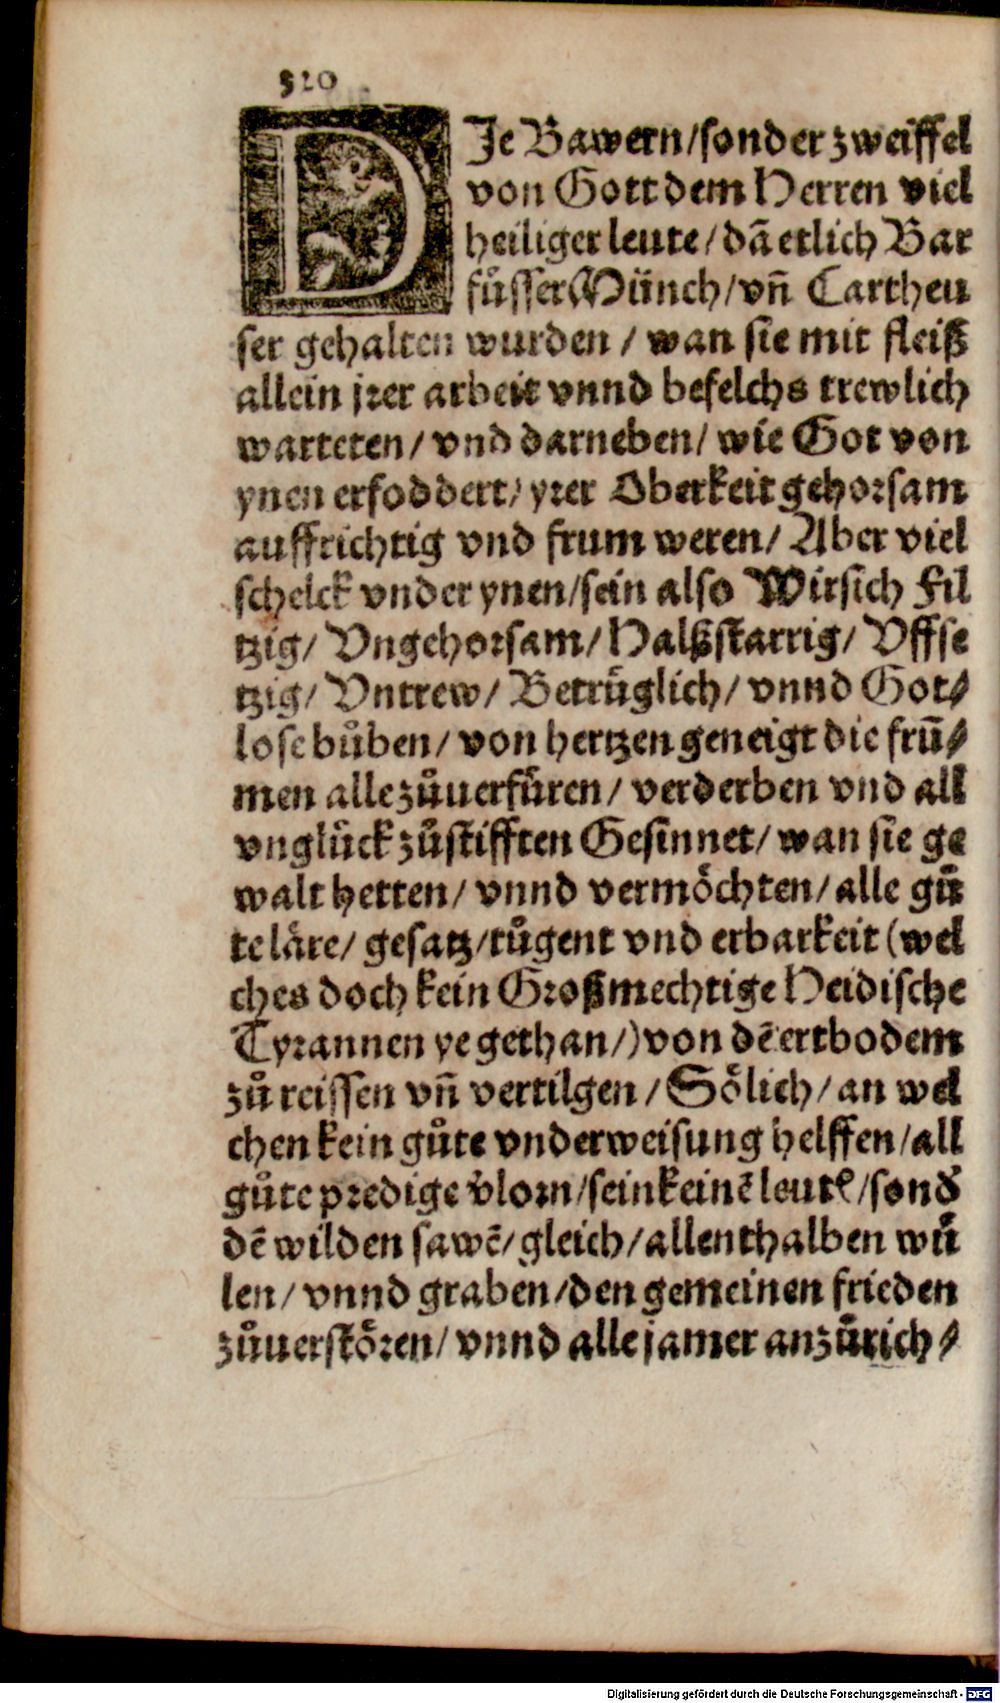 320
DJe Bawern/sonder zweiffel
von Gott dem Herren viel
heiliger leute/dañ etlich Bar
fuͤsser Muͤnch/vñ Cartheu
ser gehalten wurden / wan sie mit fleiß
allein jrer arbeit vnnd befelchs trewlich
warteten/ vnd darneben/ wie Got von
ynen erfoddert/ yrer Oberkeit gehorsam
auffrichtig vnd frum weren/ Aber viel
schelck vnder ynen/sein also Wirsich Fil
tzig/ Vngehorsam/ Halßstarrig/ Vffse
tzig/ Vntrew/ Betruͤglich/ vnnd Got⸗
lose buͦben/ von hertzen geneigt die frū⸗
men alle zuͦuerfuͤren/ verderben vnd all
vngluͤck zuͦstifften Gesinnet/ wan sie ge
walt hetten/ vnnd vermoͤchten/ alle guͦ
te laͤre/ gesatz/tuͦgent vnd erbarkeit (wel
ches doch kein Großmechtige Heidische
Tyrannen ye gethan/) von dē ertbodem
zuͦ reissen vñ vertilgen / Soͤlich/ an wel
chen kein guͦte vnderweisung helffen/all
guͦte predige v̓lorn/sein keinē leutē/sond̓
dē wilden sawē/ gleich/ allenthalben wuͤ
len/ vnnd graben/den gemeinen frieden
zuͦuerstoͤren/ vnnd alle jamer anzuͦrich⸗
Digitalisierung gefördert durch die Deutsche Forschungsgemeinschaft - DFG